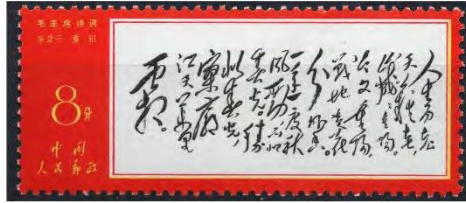 毛主席诗词
采桑子 重阳
8分
中国
人民邮政
人生易老
天难老
岁岁重阳
今又重阳
战地黄花
分外香
一年一度秋
风劲不似
春光胜
似春光
寥廓
江天万里
霜